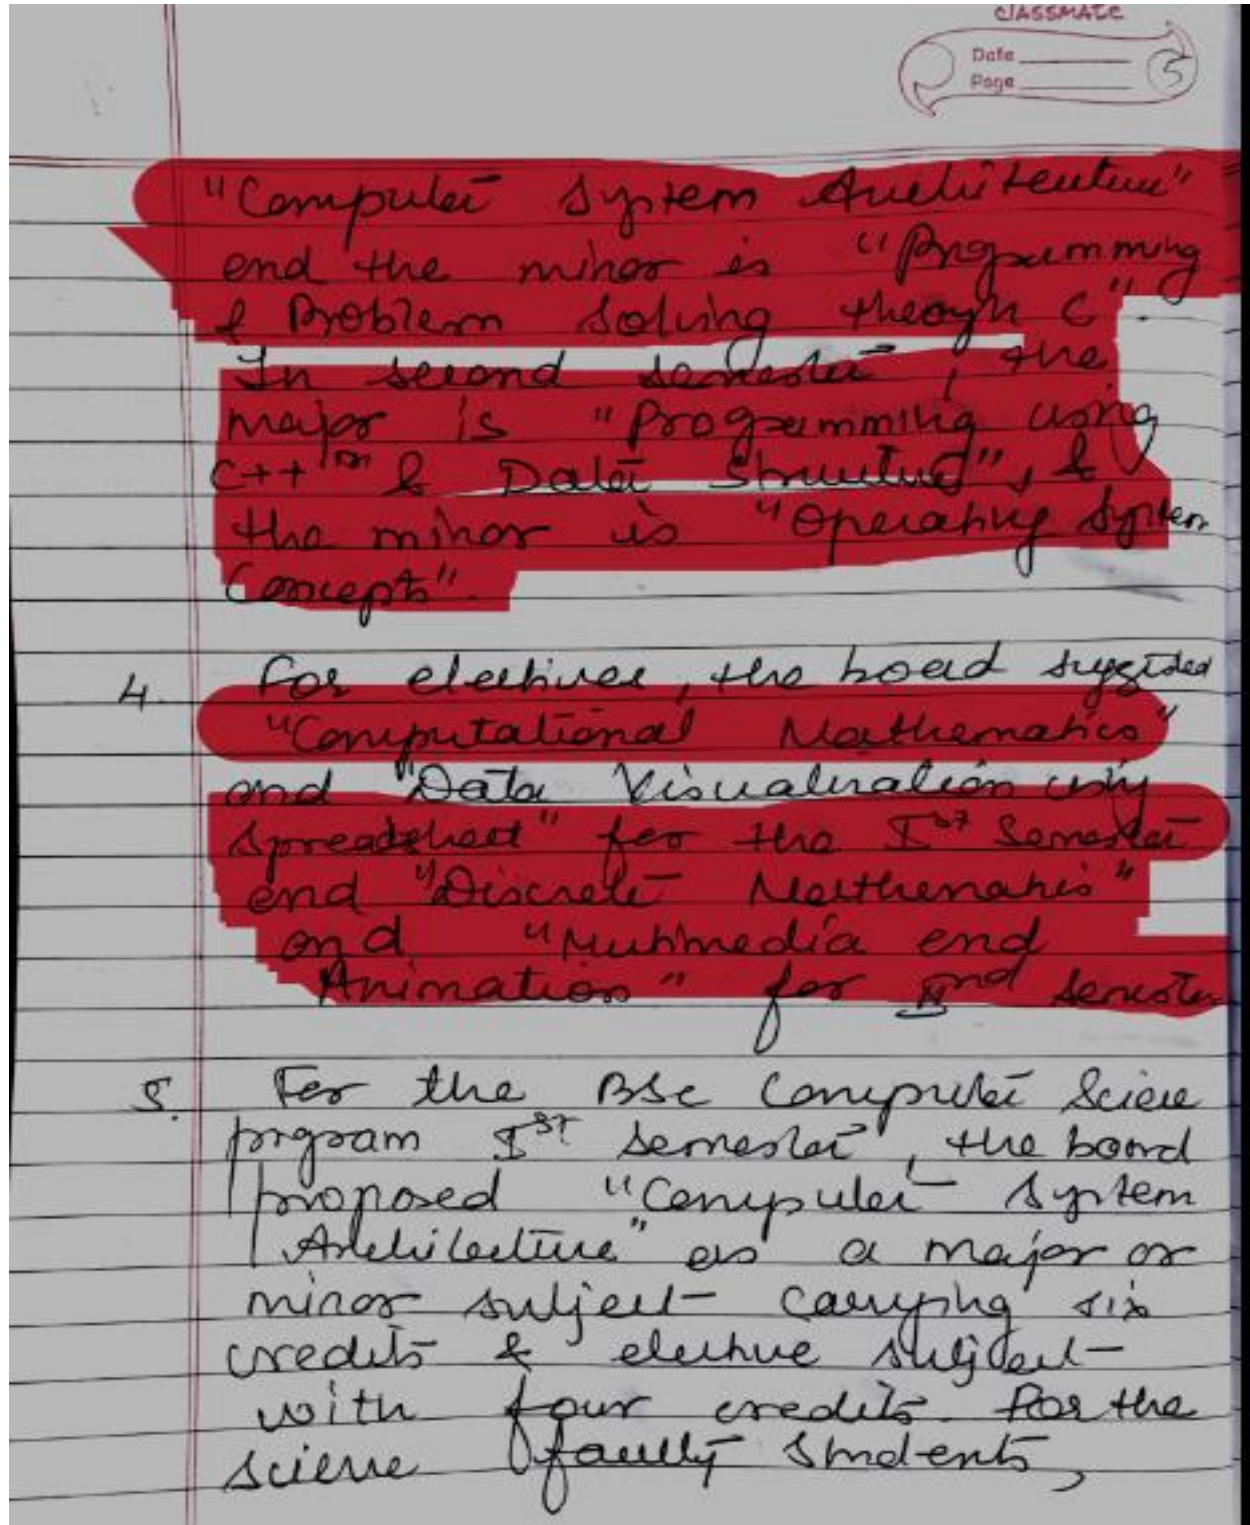 classmate
Date
Page
5
"Computer System Architecture"
and the minor is "Programming
& Problem Solving through C".
In second semester, the
major is "Programming using
C++ & Data Structure", &
the minor is "Operating System
Concepts".
4. For electives, the board suggested
"Computational Mathematics"
and "Data Visualization using
Spreadsheet" for the Ist Semester
and "Discrete Mathematics"
and "Multimedia and
Animation" for IInd semester
5. For the BSc Computer Science
program Ist semester, the board
proposed "Computer System
Architecture" as a major or
minor subject carrying six
credits & elective subject
with four credits. For the
science faculty students,